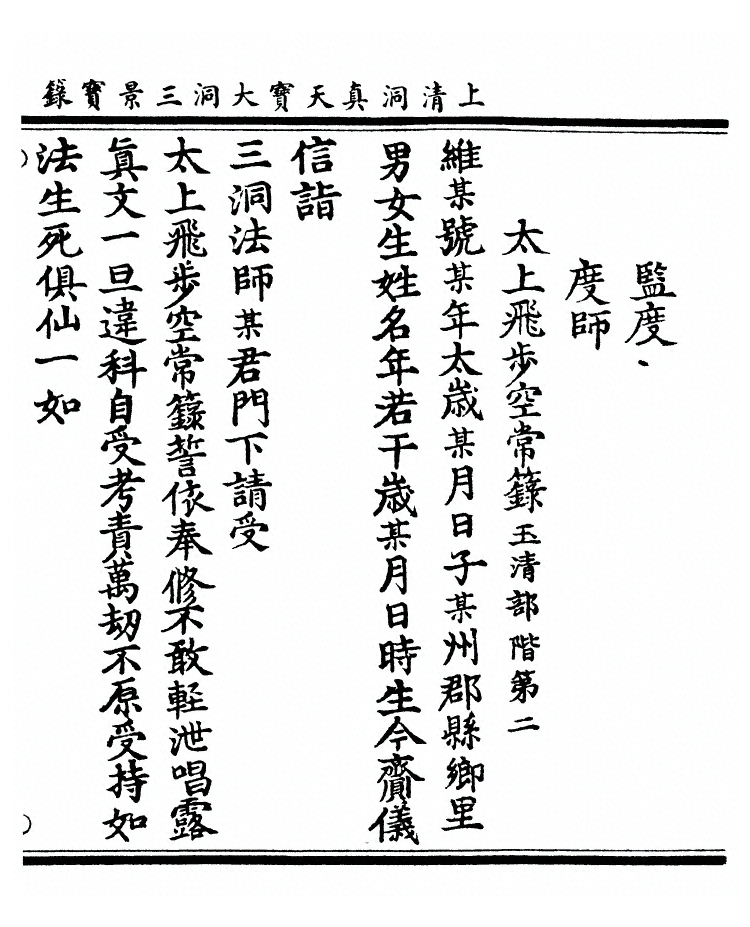 上清洞真天寶大洞三景寶籙
監度、
度師
太上飛步空常籙玉清部階第二
維某號某年太歲某月日子某州郡縣鄉里
男女生姓名年若干歲某月日時生今齎儀
信詣
三洞法師某君門下請受
太上飛步空常籙誓依奉修不敢輕泄唱露
眞文一旦違科自受考責萬劫不原受持如
法生死俱仙一如